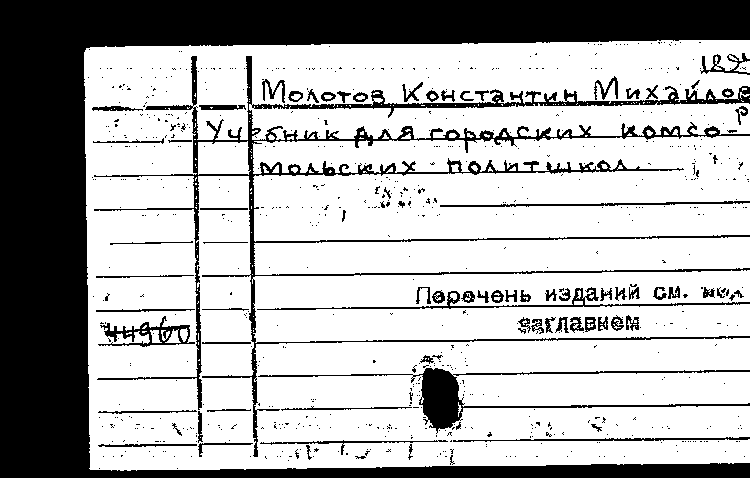 Молотов, Константин Михайлов
Учебник для городских комсо-
мольских политшкол.
Перечень изданий см. под
заглавием
44960